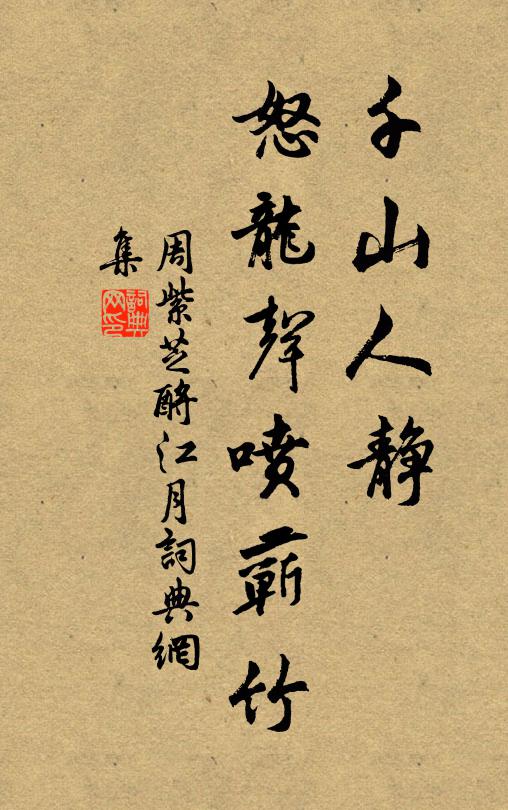 千山人靜
怒龍聲噴蘄竹
周紫芝酹江月詞典網
集
詞典
网印